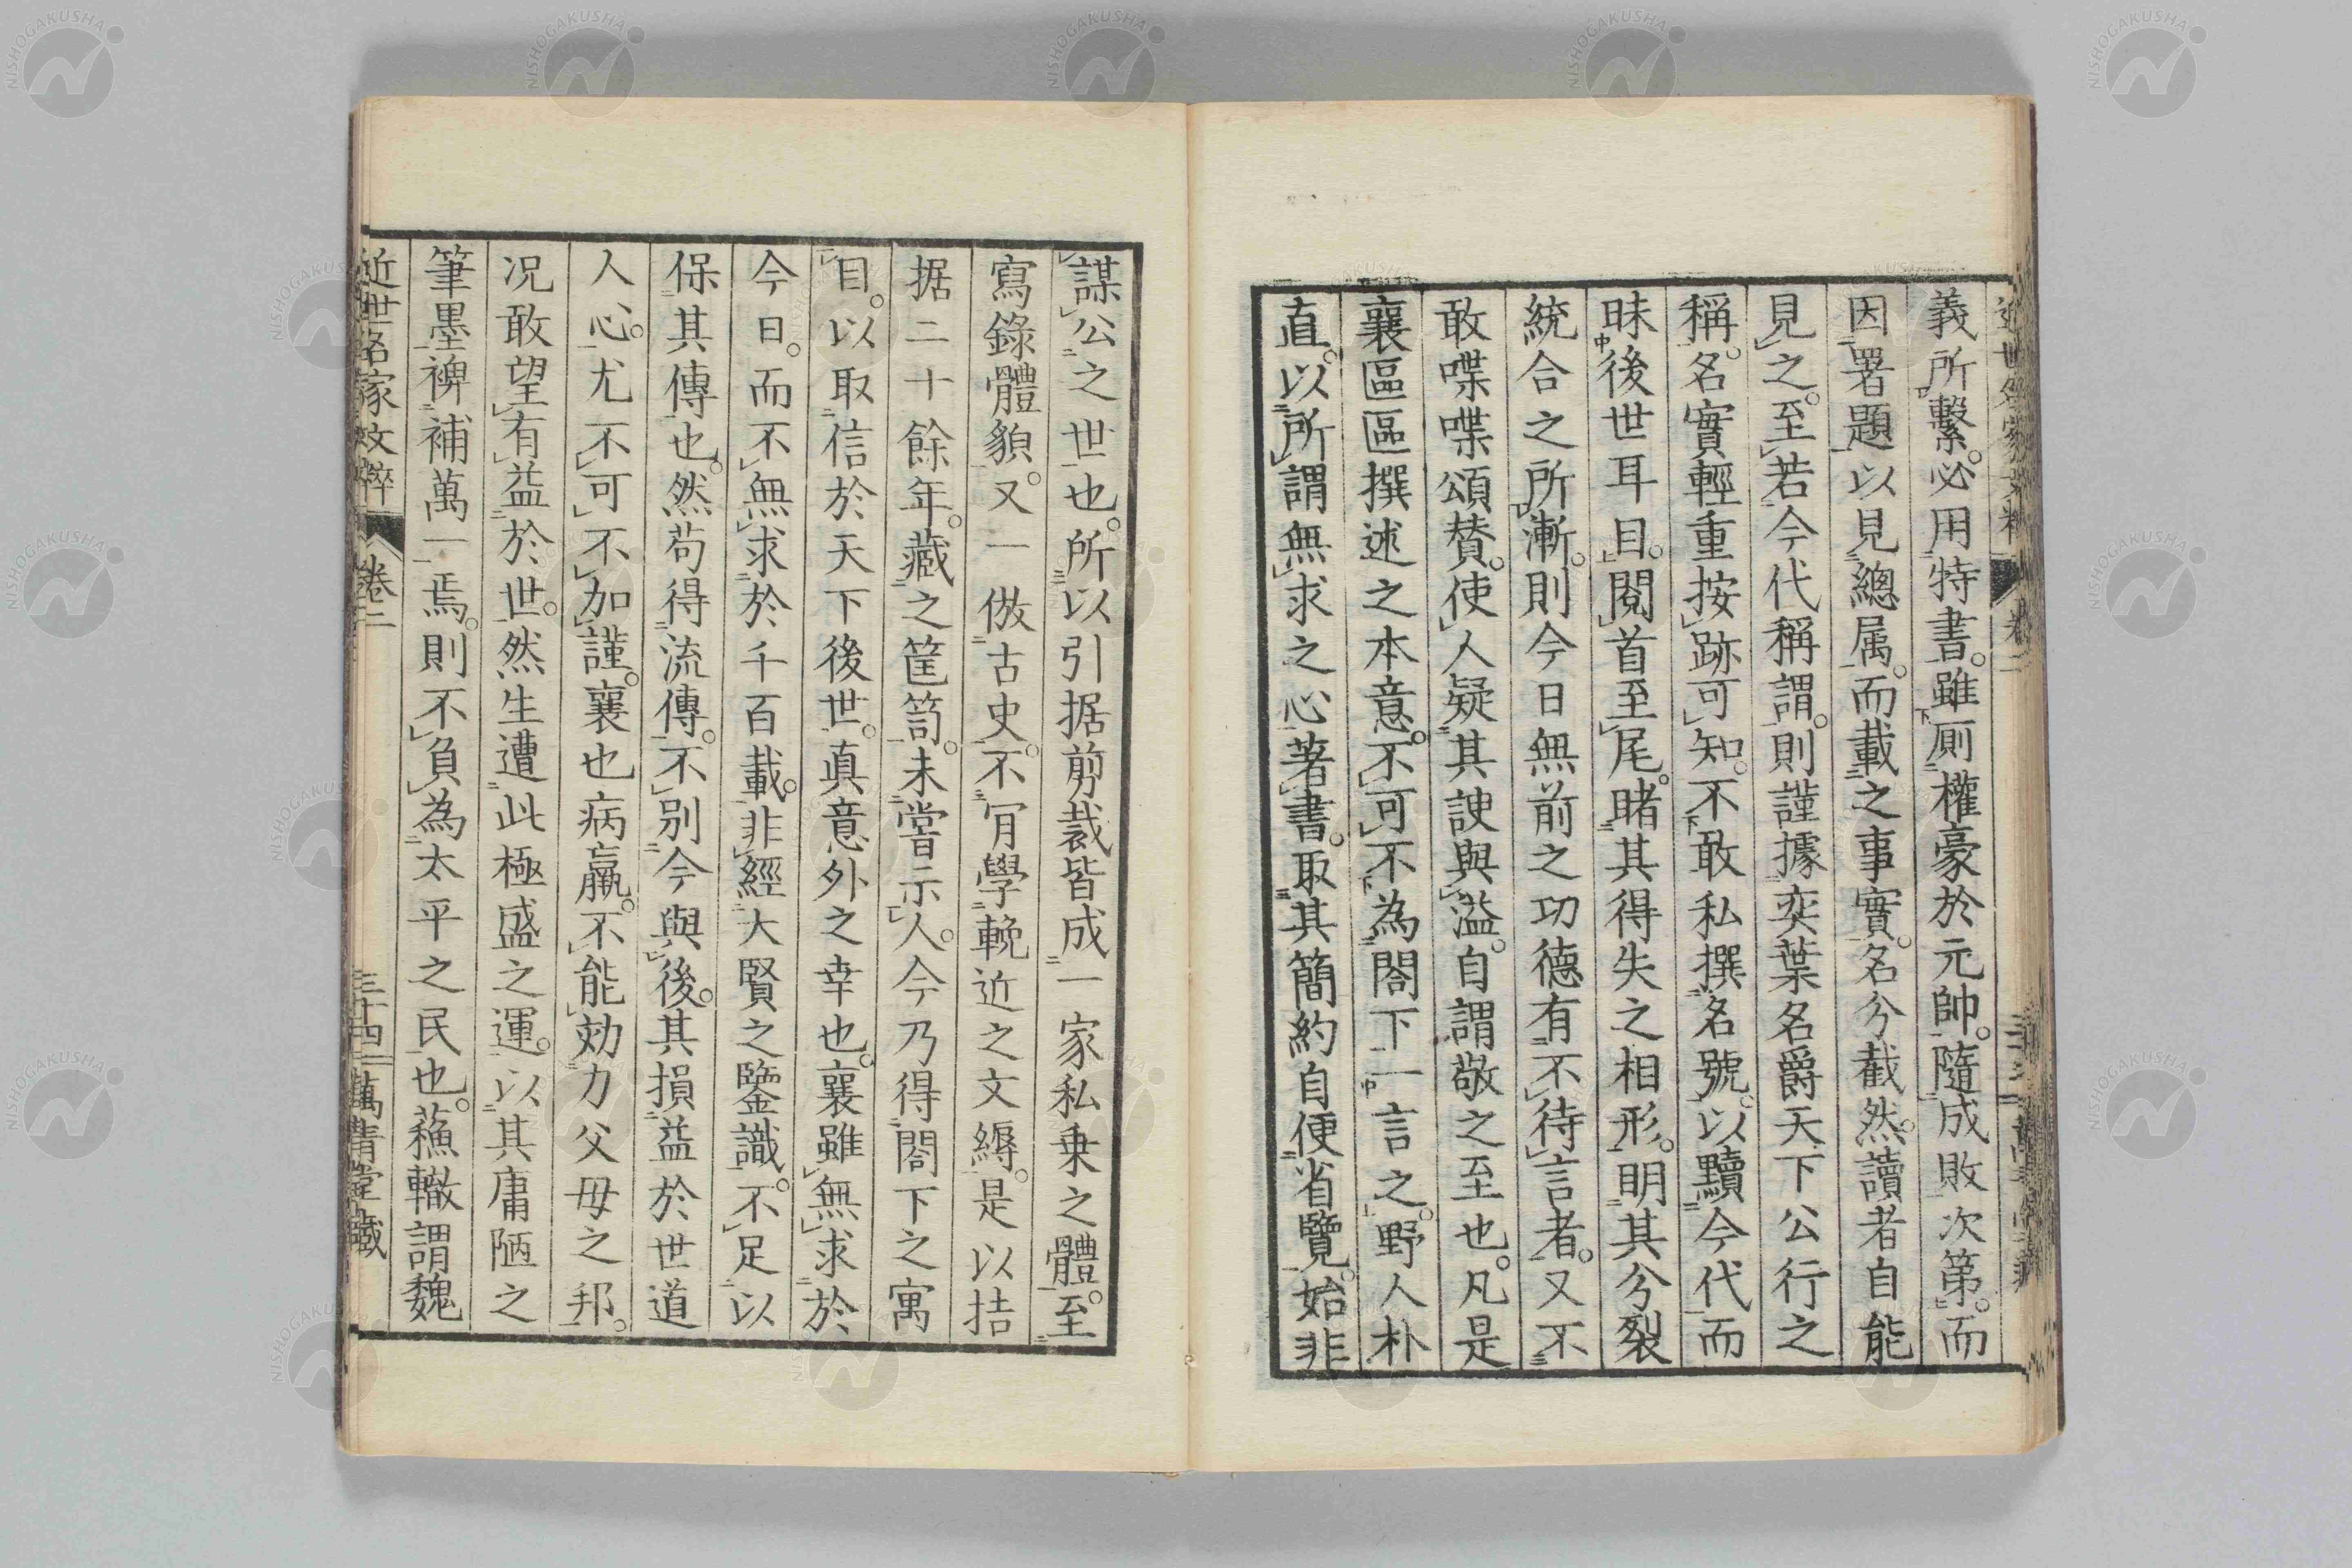 義所繫。必用特書。雖厠權豪於元帥。隨成敗次第。而
因署題以見總属。而載之事實。名分截然。讀者自能
見之。至若今代稱謂。則謹據奕葉名爵天下公行之
稱。名實輕重按跡可知。不敢私撰名號。以黷今代而
昧後世耳目。閱首至尾。睹其得失之相形。明其分裂
統合之所漸。則今日無前之功德有不待言者。又不
敢喋喋頌賛。使人疑其諛與溢。自謂敬之至也。凡是
襄區區撰述之本意。不可不為閤下一言之。野人朴
直。以所謂無求之心著書。取其簡約自便省覽。始非
謀公之世也。所以引据剪裁皆成一家私乗之體。至
寫錄體貌。又一倣古史。不肎學輓近之文縟。是以拮
据二十餘年。藏之筐笥。未嘗示人。今乃得閤下之寓
目。以取信於天下後世。真意外之幸也。襄雖無求於
今日。而不無求於千百載。非經大賢之鑒識。不足以
保其傳也。然苟得流傳。不別今與後。其損益於世道
人心。尤不可不加謹。襄也病羸。不能効力父母之邦。
况敢望有益於世。然生遭此極盛之運。以其庸陋之
筆墨裨補萬一焉。則不負為太平之民也。蘓轍謂魏
近世名家文粹 卷二 三十四 萬青堂藏
NISHOGAKUSHA